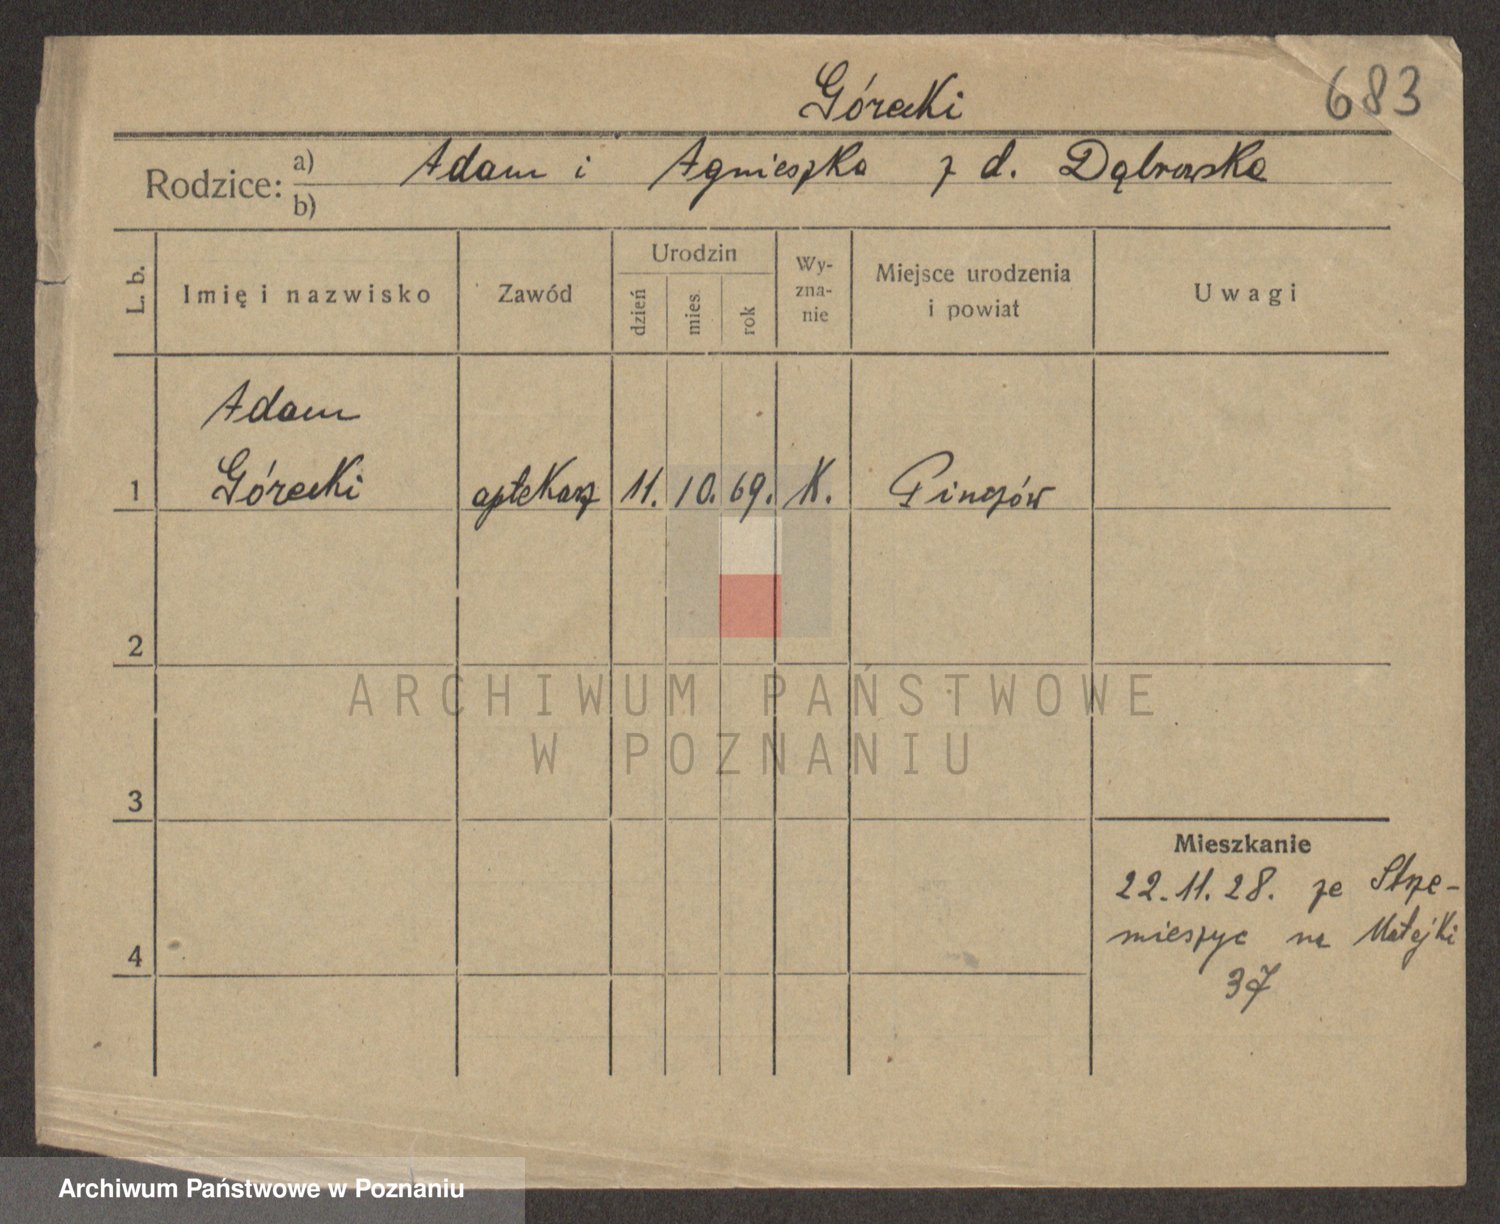 Górecki
683
Rodzice: a) Adam i Agnieszka z d. Dąbrowska
b)
L. b.
Imię i nazwisko
Zawód
Urodzin
dzień
mies.
rok
Wy-
zna-
nie
Miejsce urodzenia
i powiat
Uwagi
Adam
1 Górecki aptekarz 11. 10. 69. K. Pinczów
2
3
4
Mieszkanie
22.11.28. ze Strze-
mieszyc na Matejki
37
ARCHIWUM PAŃSTWOWE
W POZNANIU
Archiwum Państwowe w Poznaniu